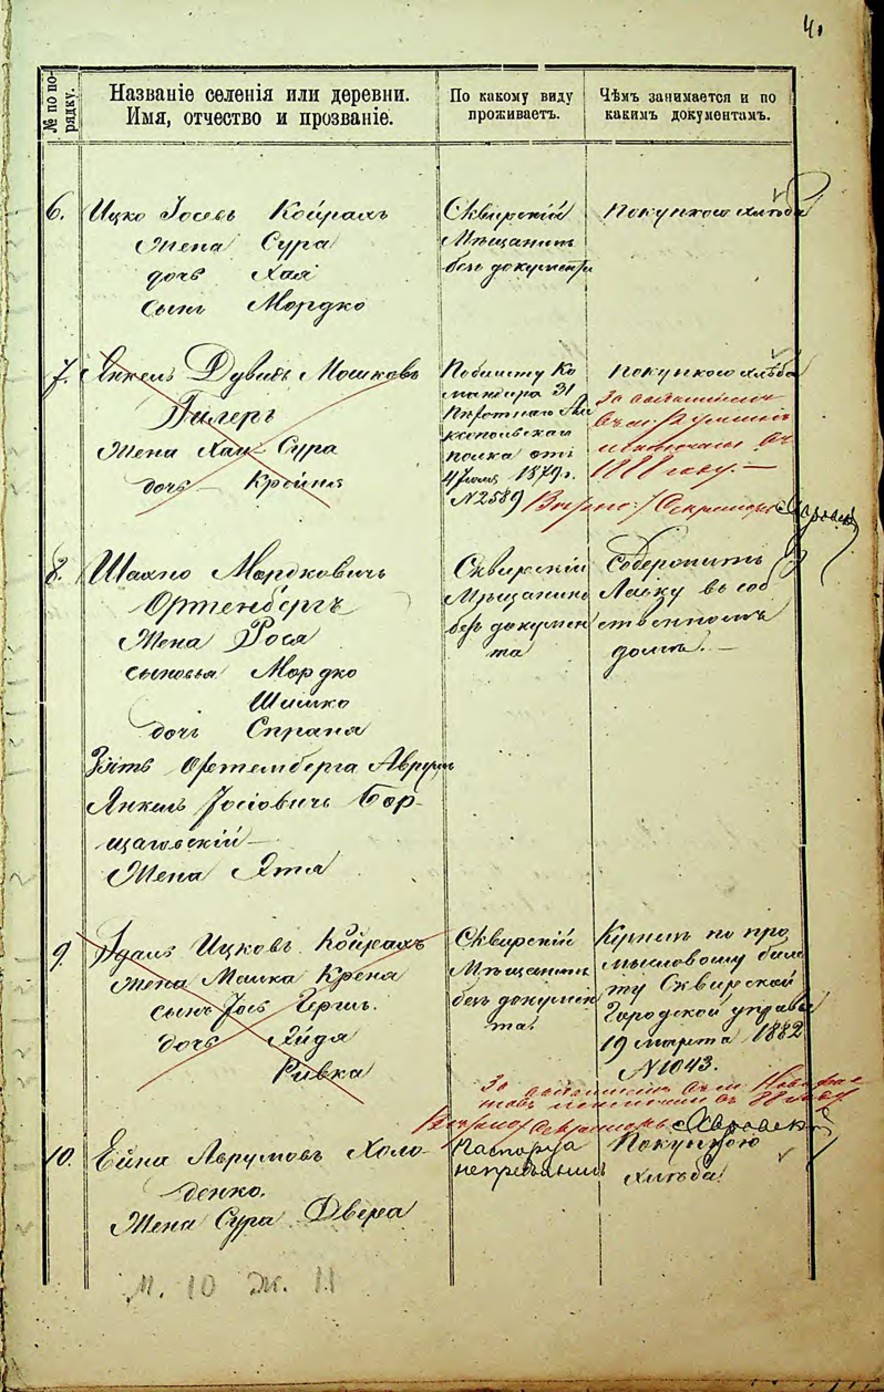 4.
№ по по-
рядку.
Названіе селенія или деревни.
Имя, отчество и прозваніе.
По какому виду
проживаетъ.
Чѣмъ занимается и по
какимъ документамъ.
6. Ицко Іосевъ Койрахъ
Жена Сура
дочь Хая
сынъ Мордко
Сквирскій
Мѣщанинъ
безъ документа
Покупкою хлѣба
7. Янкель Дувидъ Мошковъ
Гилергъ
Жена Хая Сура
дочь Крейня
Побилету Ко
мандира 31
Пѣхотнаго Але
ксопольскаго
полка отъ
4 Іюля 1879 г.
№ 2589
Покупкою хлѣба
За
въ
исключены въ
1888 году. —
Вѣрно: Секретарь
8. Шахно Мордковичъ
Ортенбергъ
Жена Рося
сыновья Мордко
Шимко
дочь Спраня
Зять Ортемберга Аврумъ
Янкель Іосіовичъ Бор-
щаговскій
Жена Эття
Сквирскій
Мѣщанинъ
безъ докумен
та
Содержитъ
Лавку въ соб
ственномъ
домѣ. —
9. Ицковъ Койрахъ
Жена Малка Креня
сынъ Іосъ Гершъ.
дочь Хайдя
Ривка
Сквирскій
Мѣщанинъ
безъ докумен
та.
Купецъ по про
мысловому биле
ту Сквирской
Городской управы
19 марта 1882
№ 1043.
За
исключены въ
Вѣрно: Секретарь
10. Аврумовъ Холо-
денко.
Жена Сура Двера
Паспорта
Покупкою
хлѣба.
М. 10 Ж. 11